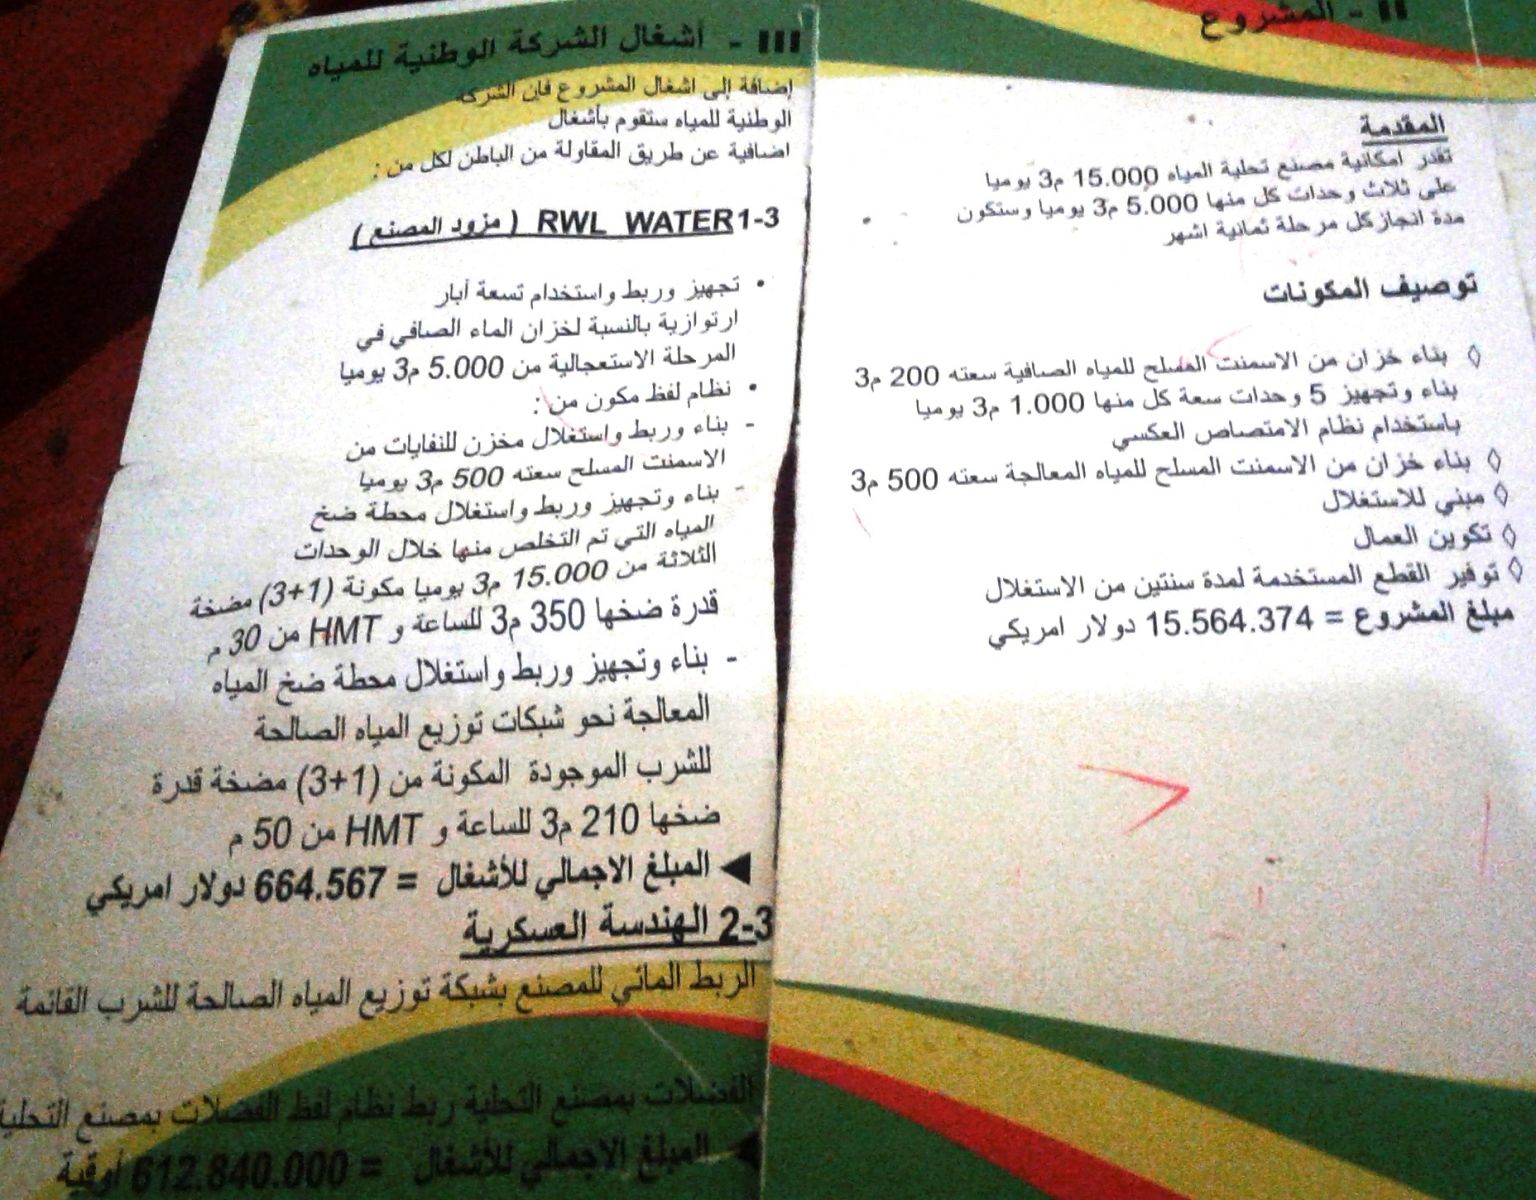 II - المشروع
المقدمة
تقدر امكانية مصنع تحلية المياه 15.000 م3 يوميا
على ثلاث وحدات كل منها 5.000 م3 يوميا وستكون
مدة انجاز كل مرحلة ثمانية اشهر
توصيف المكونات
◊ بناء خزان من الاسمنت المسلح للمياه الصافية سعته 200 م3
بناء وتجهيز 5 وحدات سعة كل منها 1.000 م3 يوميا
باستخدام نظام الامتصاص العكسي
◊ بناء خزان من الاسمنت المسلح للمياه المعالجة سعته 500 م3
◊ مبني للاستغلال
◊ تكوين العمال
◊ توفير القطع المستخدمة لمدة سنتين من الاستغلال
مبلغ المشروع = 15.564.374 دولار امريكي
III - أشغال الشركة الوطنية للمياه
إضافة إلى اشغال المشروع فإن الشركة
الوطنية للمياه ستقوم بأشغال
اضافية عن طريق المقاولة من الباطن لكل من :
1-3 RWL WATER ( مزود المصنع )
• تجهيز وربط واستخدام تسعة أبار
ارتوازية بالنسبة لخزان الماء الصافي في
المرحلة الاستعجالية من 5.000 م3 يوميا
• نظام لفظ مكون من :
- بناء وربط واستغلال مخزن للنفايات من
الاسمنت المسلح سعته 500 م3 يوميا
- بناء وتجهيز وربط واستغلال محطة ضخ
المياه التي تم التخلص منها خلال الوحدات
الثلاثة من 15.000 م3 يوميا مكونة (1+3) مضخة
قدرة ضخها 350 م3 للساعة و HMT من 30 م
- بناء وتجهيز وربط واستغلال محطة ضخ المياه
المعالجة نحو شبكات توزيع المياه الصالحة
للشرب الموجودة المكونة من (1+3) مضخة قدرة
ضخها 210 م3 للساعة و HMT من 50 م
◄ المبلغ الاجمالي للأشغال = 664.567 دولار امريكي
2-3 الهندسة العسكرية
الربط المائي للمصنع بشبكة توزيع المياه الصالحة للشرب القائمة
الفضلات بمصنع التحلية ربط نظام لفظ الفضلات بمصنع التحلية
◄ المبلغ الاجمالي للأشغال = 612.840.000 أوقية